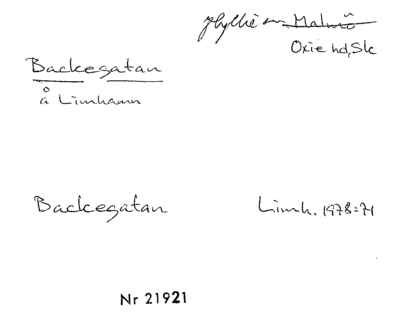 Hyllie sn Malmö
Oxie hd, Sk
Backegatan
å Limhamn
Backegatan Limh. 1978:71
Nr 21921